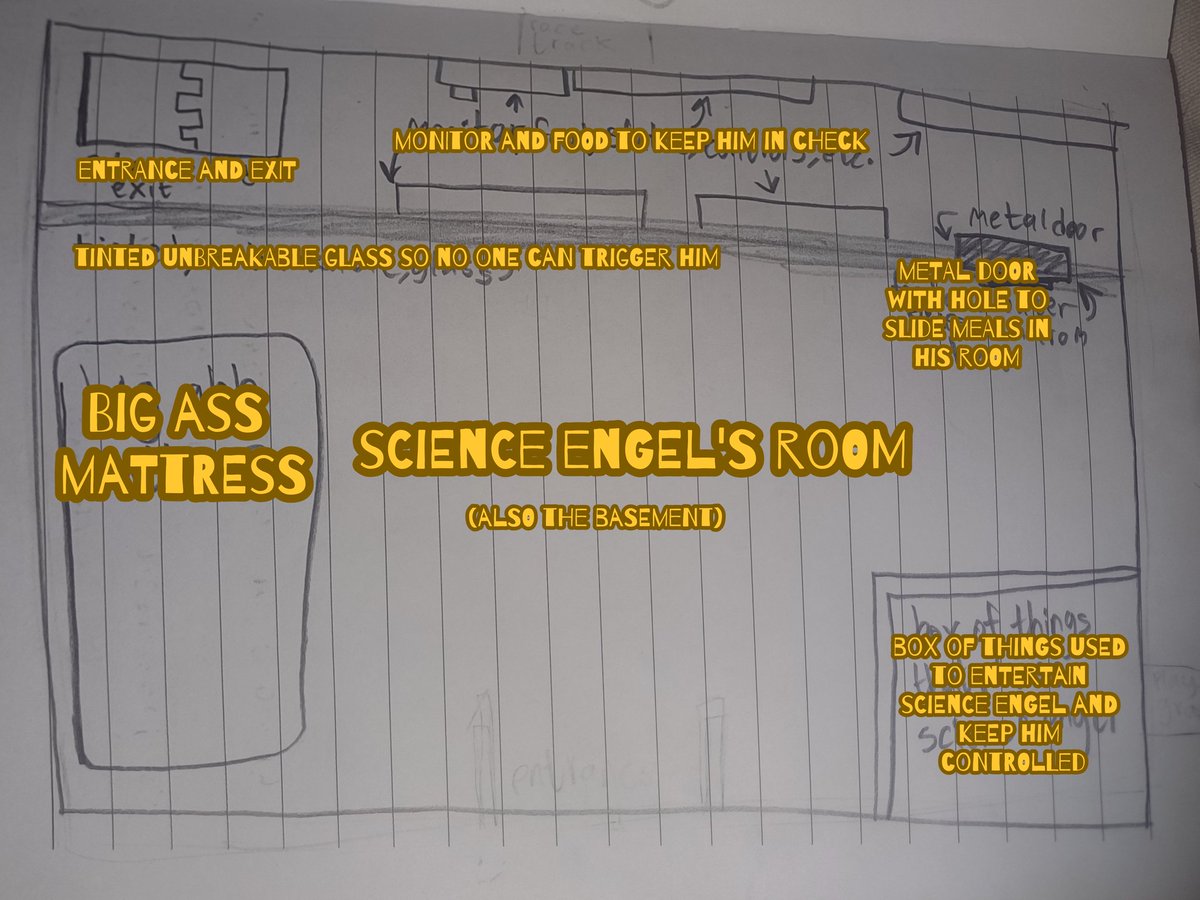 race
track
MONITOR AND FOOD TO KEEP HIM IN CHECK
controls, etc.
ENTRANCE AND EXIT
exit
metal door
TINTED UNBREAKABLE GLASS SO NO ONE CAN TRIGGER HIM
METAL DOOR
WITH HOLE TO
SLIDE MEALS IN
HIS ROOM
BIG ASS
MATTRESS
SCIENCE ENGEL'S ROOM
(ALSO THE BASEMENT)
box of things
BOX OF THINGS USED
TO ENTERTAIN
SCIENCE ENGEL AND
KEEP HIM
CONTROLLED